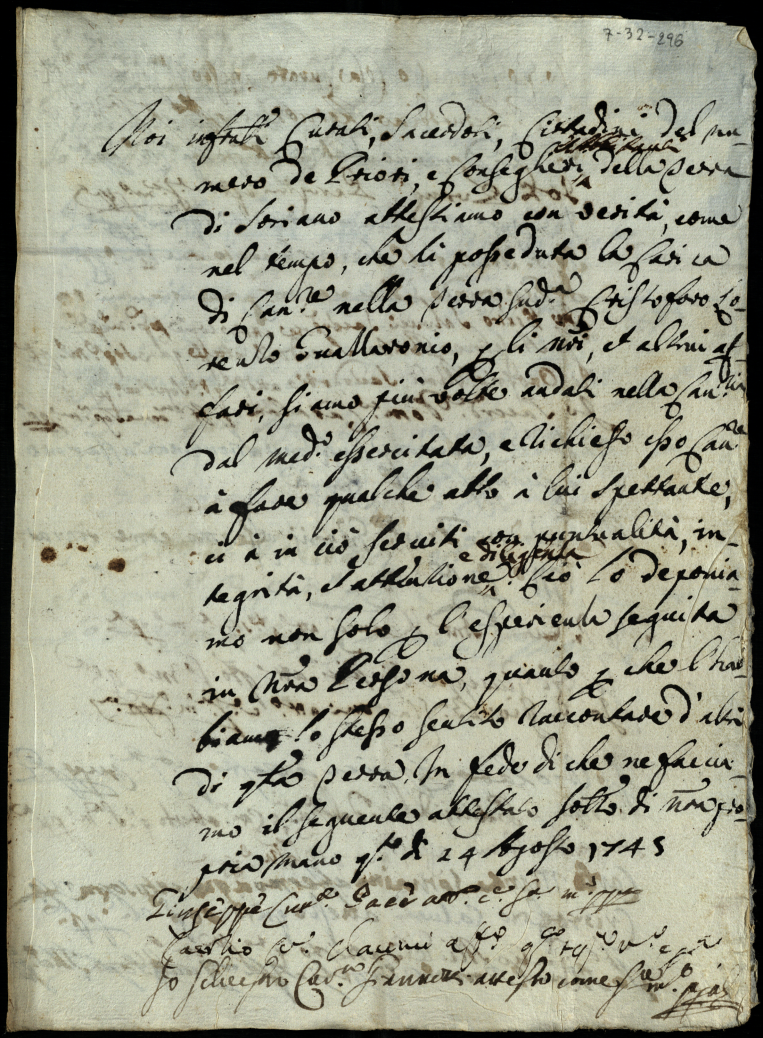 7-32-296
Noi infratti Curati, Sacerdoti, Cittadini del nu-
mero de Priori, e Conseglieri della Terra
di Soriano attestiamo con verità, come
nel tempo, che hà posseduta la Carica
di Can.re nella Terra sud.a Cristoforo Lo-
renzo, p li nri, et altrui af-
fari, siamo più volte andati nella Can.ria
dal med.o essercitata, e richiesto esso Can.re
à fare qualche atto à lui spettante,
ci à in ciò serviti con puntualità, in-
tegrità, et attenzione e diligenza. Ciò lo deponia-
mo non solo p l'esperienza seguita
in nra Persona, quanto p che l'hab-
biamo lo stesso sentito raccontare d'altri
di qta Terra. In fede di che ne faccia-
mo il seguente attestato sotto di nra pro-
pria mano q.to dì 24 Agosto 1745
Giuseppe Cur.to mppr
q.to
Io Cav.re attesto come so.a m.o ppia